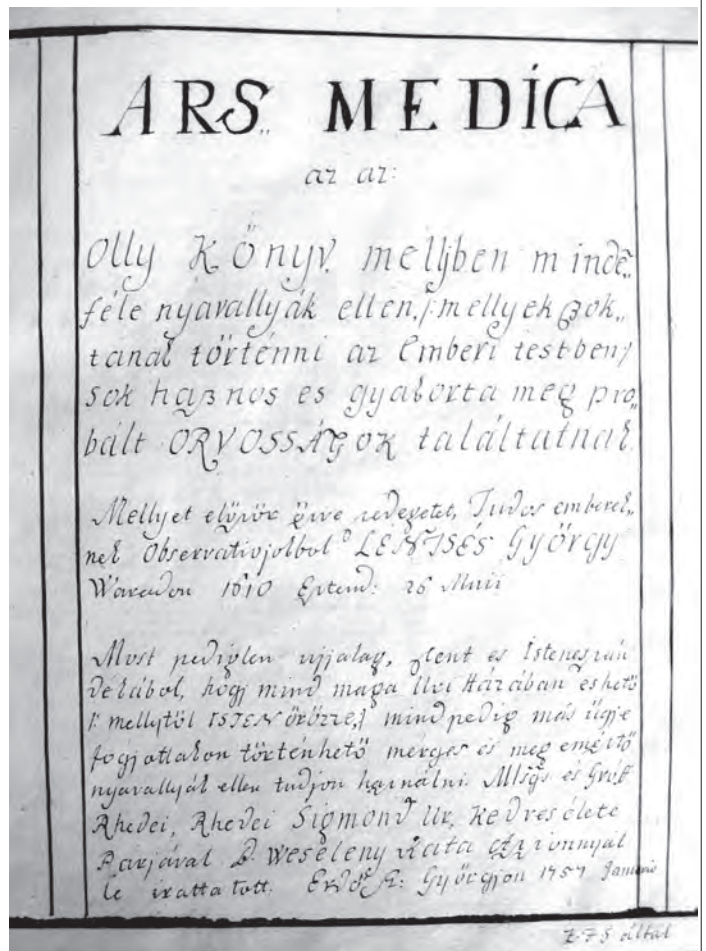 ARS MEDICA
az az:
Olly Kőnyv, melljben minde„
féle nyavallyák ellen, /: mellyek szok„
tanak tőrténni az Emberi testben/
sok hasznos es gyakorta meg pro„
bált ORVOSSÁGOK találtatnak.
Mellyet először őszve szedegetet, Tudos emberek„
nek Observatiojolbol D LENTSÉS Gyŏrgy
Waradon 1610 Esztend: 26 Maii
Most pediglen ujjalag, szent és Istenes szán
dékábol, hogj mind maga Uri Házában eshető
/: melljtöl ISTEN őrözze,/ mind pedig más ügje
fogjottakon tőrténhető mérges és meg emésztő
nyavallyák ellen tudjon használni. Mlsgs és Gróff
Rhedei, Rhedei Sigmond Ur, Kedves élete
Párjával D. Weseleny Kata Aszszonnyal
le iratta tott. Erdő Sz: Gyŏrgjŏn 1757 Januario
Z. Z. S által